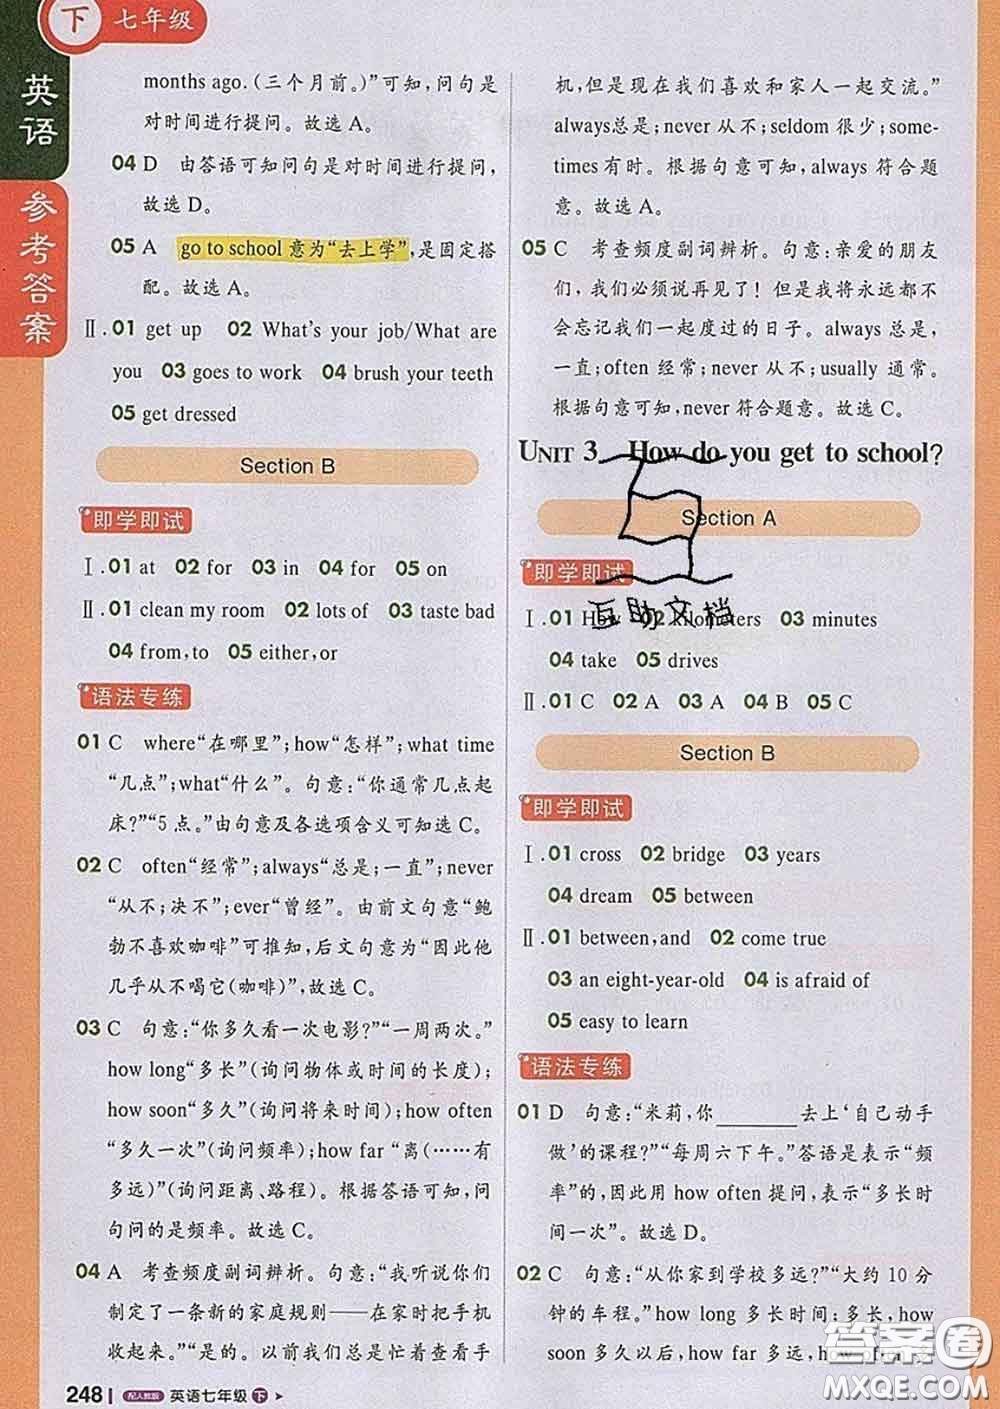 下 七年级
英语
参考答案
months ago.(三个月前。)”可知，问句是
对时间进行提问。故选 A。
04 D 由答语可知问句是对时间进行提问，
故选 D。
05 A go to school 意为“去上学”，是固定搭
配。故选 A。
Ⅱ.01 get up 02 What's your job/What are
you 03 goes to work 04 brush your teeth
05 get dressed
Section B
即学即试
Ⅰ.01 at 02 for 03 in 04 for 05 on
Ⅱ.01 clean my room 02 lots of 03 taste bad
04 from,to 05 either,or
语法专练
01 C where“在哪里”;how“怎样”;what time
“几点”;what“什么”。句意:“你通常几点起
床?”“5 点。”由句意及各选项含义可知选 C。
02 C often“经常”;always“总是;一直”;never
“从不;决不”;ever“曾经”。由前文句意“鲍
勃不喜欢咖啡”可推知，后文句意为“因此他
几乎从不喝它(咖啡)”,故选 C。
03 C 句意:“你多久看一次电影?”“一周两次。”
how long“多长”(询问物体或时间的长度);
how soon“多久”(询问将来时间);how often
“多久一次”(询问频率);how far “离(……有
多远)”(询问距离、路程)。根据答语可知，问
句问的是频率。故选 C。
04 A 考查频度副词辨析。句意:“我听说你们
制定了一条新的家庭规则——在家时把手机
收起来。”“是的。以前我们总是忙着查看手
机，但是现在我们喜欢和家人一起交流。”
always总是;never 从不;seldom 很少;some-
times 有时。根据句意可知，always 符合题
意。故选 A。
05 C 考查频度副词辨析。句意:亲爱的朋友
们，我们必须说再见了！但是我将永远都不
会忘记我们一起度过的日子。always 总是，
一直;often 经常;never 从不;usually 通常。
根据句意可知,never 符合题意。故选 C。
UNIT 3 How do you get to school?
Section A
即学即试
Ⅰ.01 How 02 kilometers 03 minutes
互助文档
04 take 05 drives
Ⅱ.01 C 02 A 03 A 04 B 05 C
Section B
即学即试
Ⅰ.01 cross 02 bridge 03 years
04 dream 05 between
Ⅱ.01 between,and 02 come true
03 an eight-year-old 04 is afraid of
05 easy to learn
语法专练
01 D 句意:“米莉，你________去上‘自己动手
做’的课程?”“每周六下午。”答语是表示“频
率”的，因此用 how often 提问，表示“多长时
间一次”。故选 D。
02 C 句意:“从你家到学校多远?”“大约 10 分
钟的车程。”how long 多长时间;多长，how
soon 多久以后，how far 多远，how
答案圈
MXQE.COM
248 配人教版 英语七年级 下